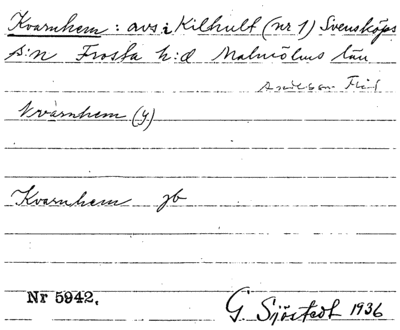 Kvarnhem : avs. i Kilhult (nr 1) Svensköps
s:n Frosta h:d Malmöhus län
Kvarnhem (y)
Kvarnhem jb
Nr 5942.
G. Sjöstedt 1936